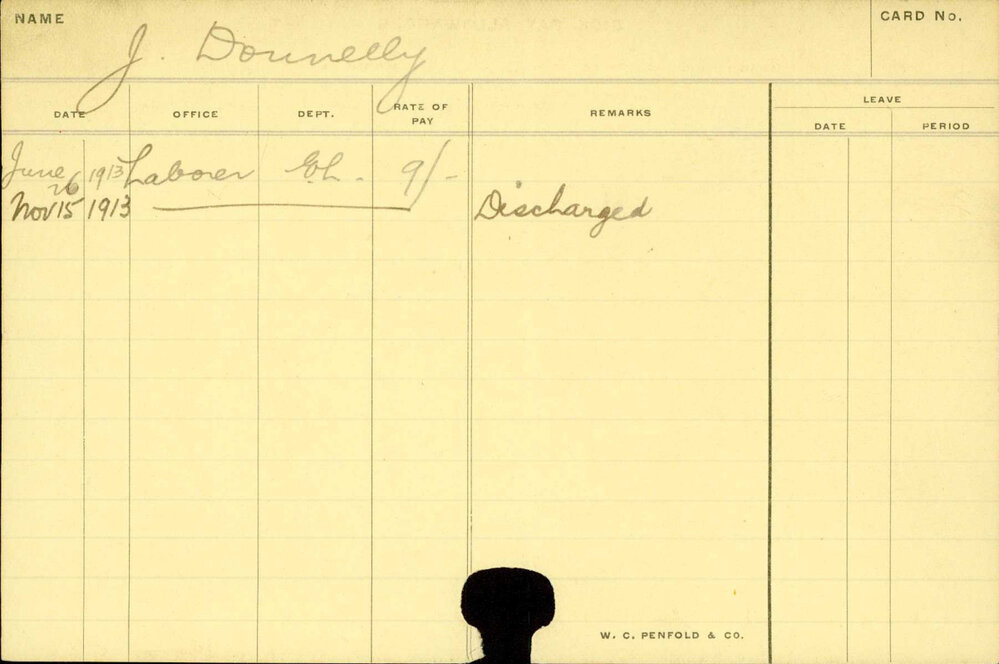 NAME
CARD No.
J. Donnelly
DATE OFFICE DEPT. RATE OF PAY REMARKS LEAVE
DATE PERIOD
June 26 1913 Laborer 9/-
Nov 15 1913 Discharged
W. C. PENFOLD & CO.